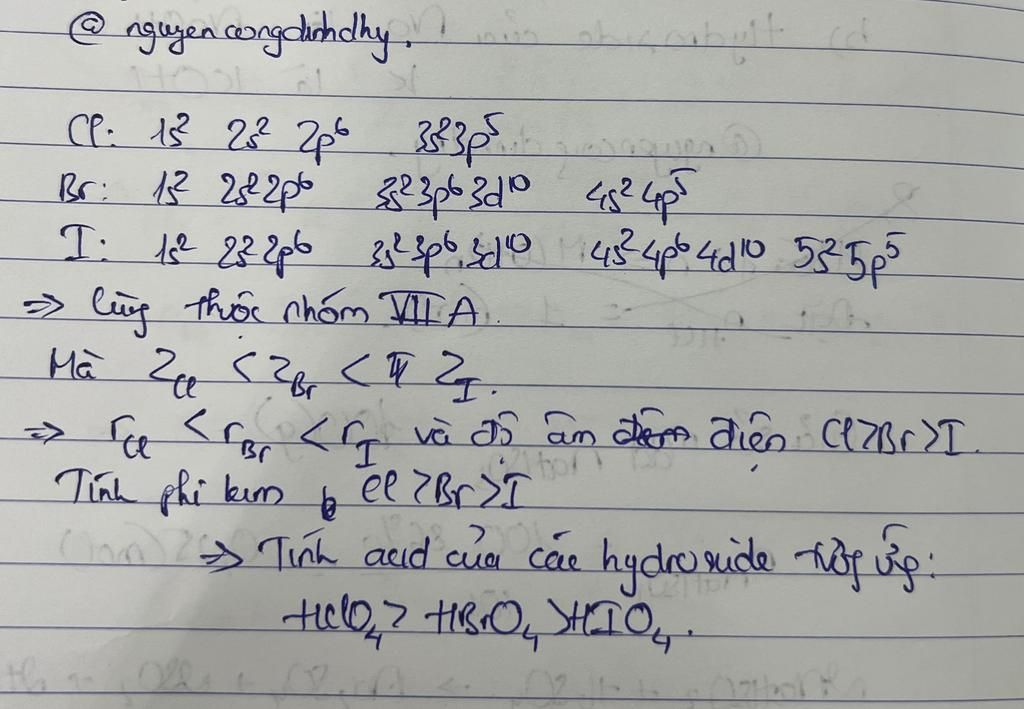 @ nguyencongdinhdhy.
Cl: 1s² 2s² 2p⁶ 3s²3p⁵
Br: 1s² 2s²2p⁶ 3s²3p⁶3d¹⁰ 4s²4p⁵
I: 1s² 2s²2p⁶ 3s²3p⁶3d¹⁰ 4s²4p⁶4d¹⁰ 5s²5p⁵
=> Cùng thuộc nhóm VIIA.
Mà Z_Cl < Z_Br < Z_I.
=> r_Cl < r_Br < r_I và độ âm điện Cl>Br>I.
Tính phi kim Cl>Br>I
=> Tính acid của các hydroxide tương ứng:
HClO₄> HBrO₄>HIO₄.